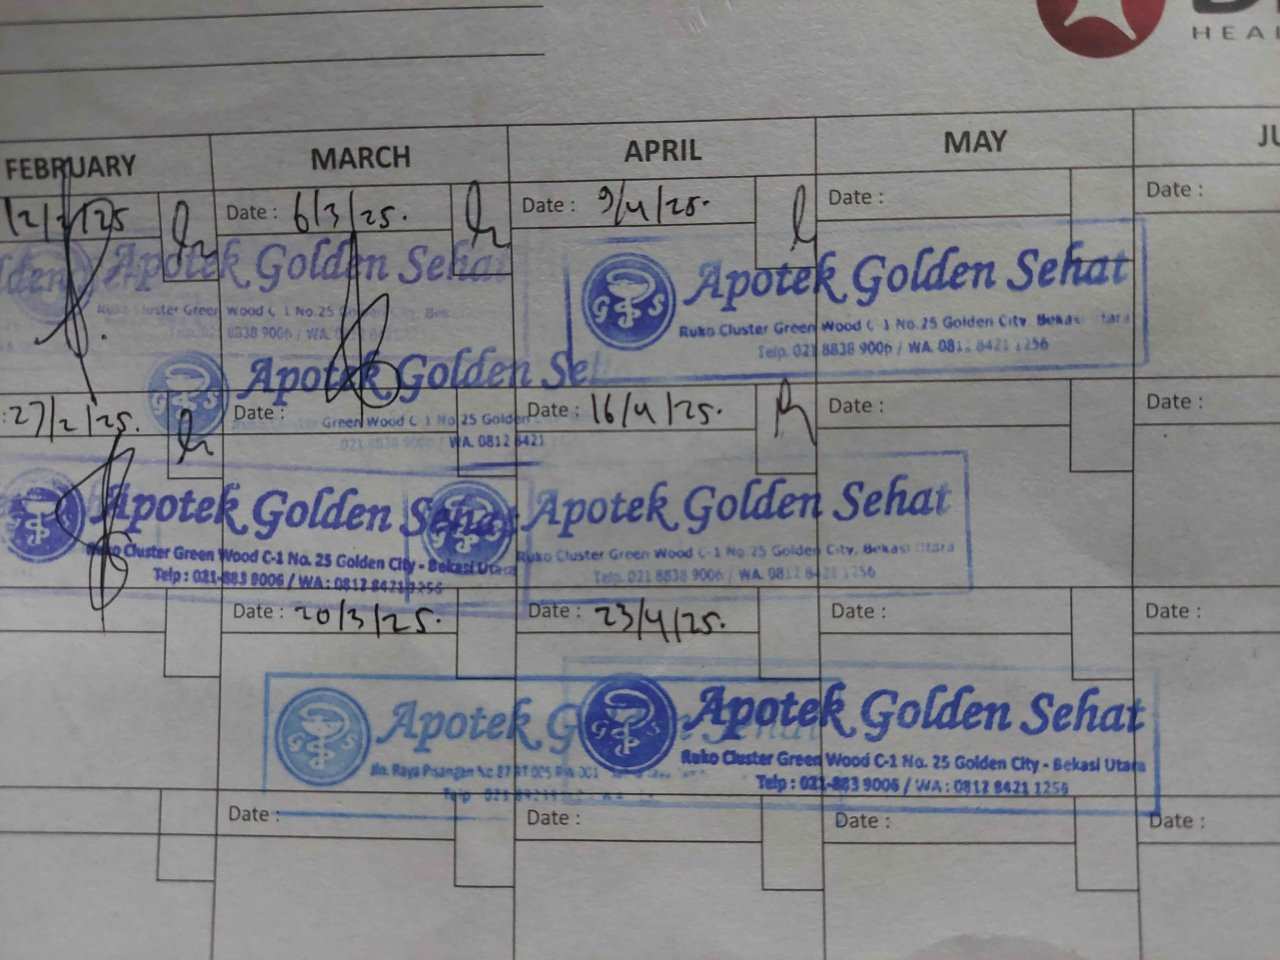 HEAL
FEBRUARY
MARCH
APRIL
MAY
12/2/25
Date : 6/3/25.
Date : 9/4/25.
Date :
Date :
Apotek Golden Sehat
Ruko Cluster Green Wood C-1 No.25 Golden City, Bek
8838 9006 / WA.
Apotek Golden Sehat
Ruko Cluster Green Wood C-1 No.25 Golden City, Bekasi Utara
Telp. 021 8838 9006 / WA. 0812 8421 1256
Apotek Golden Se
Green Wood C-1 No.25 Golden
021 8838 9006 / WA. 0812 8421
: 27/2/25.
Date :
Date : 16/4/25.
Date :
Date :
Apotek Golden Sehat
Ruko Cluster Green Wood C-1 No. 25 Golden City - Bekasi Utara
Telp : 021-883 9006 / WA : 0812 8421 1256
Apotek Golden Sehat
Ruko Cluster Green Wood C-1 No.25 Golden City, Bekasi Utara
Telp. 021 8838 9006 / WA. 0812 8421 1256
Date : 20/3/25.
Date : 23/4/25.
Date :
Date :
Apotek G
Jln. Raya Pisangan No.87 RT 005 RW 001
Telp
Apotek Golden Sehat
Ruko Cluster Green Wood C-1 No. 25 Golden City - Bekasi Utara
Telp : 021-883 9006 / WA : 0812 8421 1256
Date :
Date :
Date :
Date :